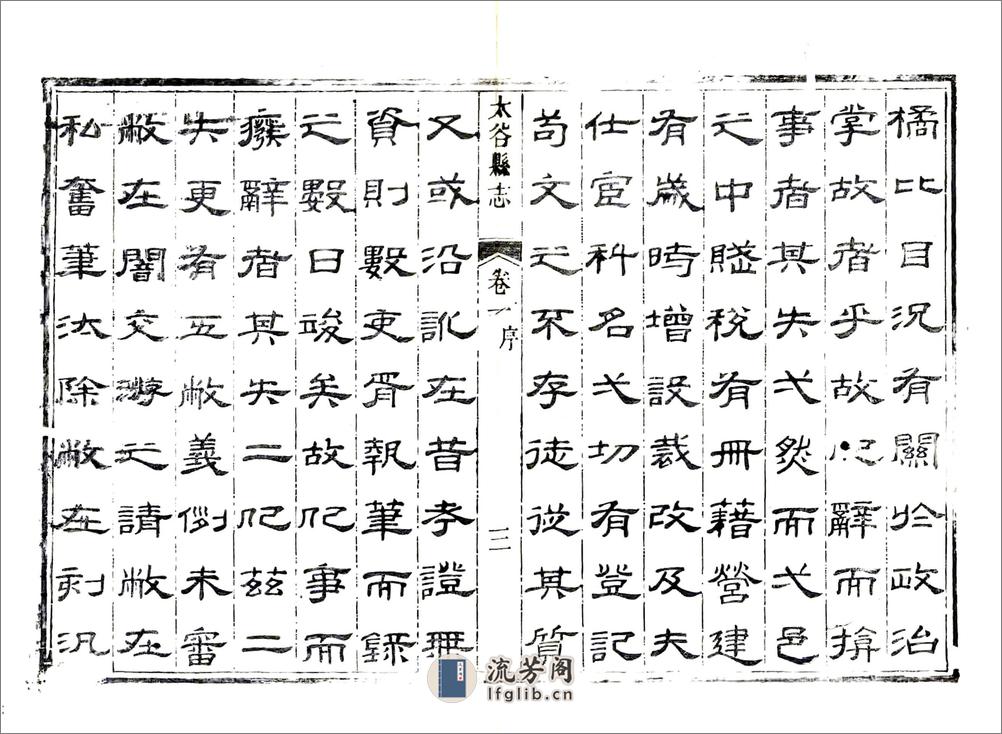 橘比目況有關於政治
掌故者乎故凡辭而揜
事者其失弌然而弌邑
之中賦稅有冊藉營建
有歲時增設裁改及夫
仕宦科名弌切有登記
苟文之不存徒從其質
太谷縣志 卷一 序 三
又或沿訛在昔考證無
資則數吏胥執筆而錄
之數日竣矣故凡事而
癈辭者其失二凡茲二
失更有五敝義例未審
敝在闇交游之請敝在
私奮筆汰除敝在刻汎
流芳阁
lfglib.cn